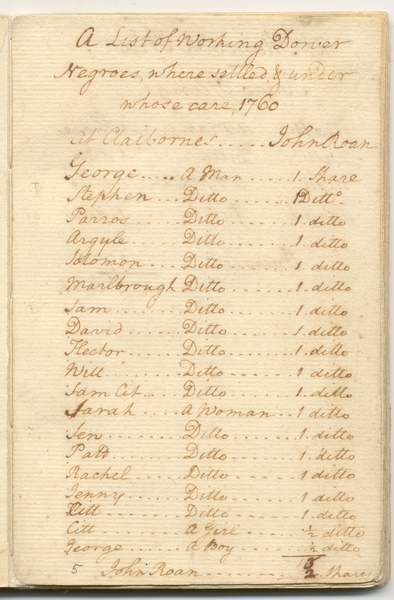 A List of Working Dower
Negroes, where settled, & under
whose care, 1760
At Claibornes ..... John Roan
George ..... A Man ..... 1 Share
Stephen ... Ditto ....... 1 Ditto
Parros .... Ditto ....... 1 ditto
Argyle .... Ditto ....... 1 ditto
Solomon ... Ditto ....... 1 ditto
Marlbrough Ditto ....... 1 ditto
Sam ....... Ditto ....... 1 ditto
David ..... Ditto ....... 1 ditto
Hector .... Ditto ....... 1 ditto
Will ...... Ditto ....... 1 ditto
Sam Cit ... Ditto ....... 1 ditto
Sarah ..... A Woman .. 1 ditto
Jen ....... Ditto ....... 1 ditto
Patt ...... Ditto ....... 1 ditto
Rachel .... Ditto ....... 1 ditto
Jenny ..... Ditto ....... 1 ditto
Citt ...... Ditto ....... 1 ditto
Citt ...... A Girl ...... ½ ditto
George .... A Boy ...... ½ ditto
5 John Roan ........... Share